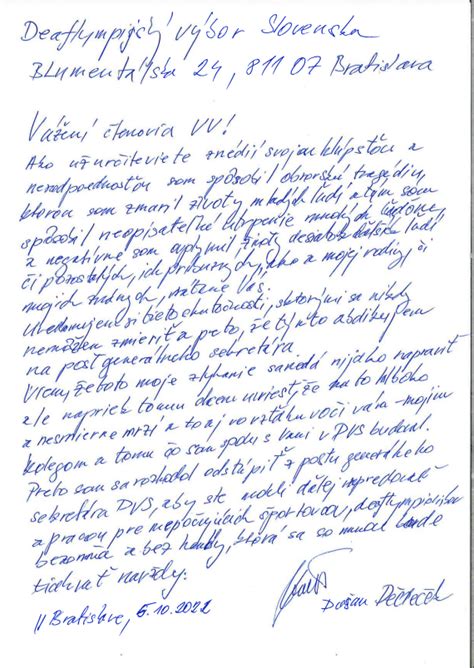 Deaflympijský výbor Slovenska
Blumentálska 24, 811 07 Bratislava
Vážení členovia VV!
Ako už určite viete z médií svojou hlúposťou a
nezodpovednosťou som spôsobil obrovskú tragédiu,
ktorou som zmaril životy mladých ľudí a tým som
spôsobil neopísateľné utrpenie mnohých ľudí
a negatívne som ovplyvnil životy desiatok ľudí
či pozostalých, ich príbuzných, ako a mojej rodiny či
mojich známych, vrátane Vás.
Uvedomujem si tieto skutočnosti, s ktorými sa nikdy
nemôžem zmieriť a preto, že týmto abdikujem
na post generálneho sekretára
Viem, že toto moje zlyhanie sa nedá nijako napraviť
ale napriek tomu chcem uviesť, že ma to hlboko
a nesmierne mrzí a to aj vo vzťahu voči vám - mojim
kolegom a tomu čo som spolu s Vami v DVS budoval.
Preto som sa rozhodol odstúpiť z postu generálneho
sekretára DVS, aby ste mohli ďalej napredovať
a pracovať pre nepočujúcich športovcov, deaflympionikov
bezo mňa a bez hanby, ktorá sa so mnou bude
navždy.
V Bratislave, 5.10.2022
Dušan Dědeček